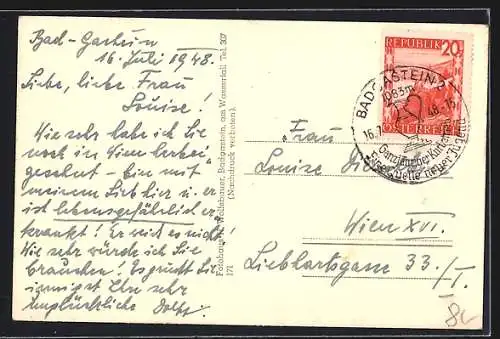 Bad-Gastein
16. Juli 1948.
Liebe, liebe Frau
Louise!
Wie sehr habe ich Sie
noch in Wien herbei
gesehnt - Bin mit
meinem Lieb hier u. er
ist lebensgefährlich er-
krankt! Er weiß es nicht!
Wie sehr würde ich Sie
brauchen! Es grüßt Sie
innigst Ihr sehr
unglückliche
Fotohaus Wolfsbauer, Badgastein, am Wasserfall, Tel. 307
(Nachdruck verboten)
171
REPUBLIK 20
ÖSTERREICH
BADGASTEIN 2
1083m
16. 48-15
Ganzjähriger Kurbetrieb
Frau
Louise
Wien XVI.
Liebhartsgasse 33/I.